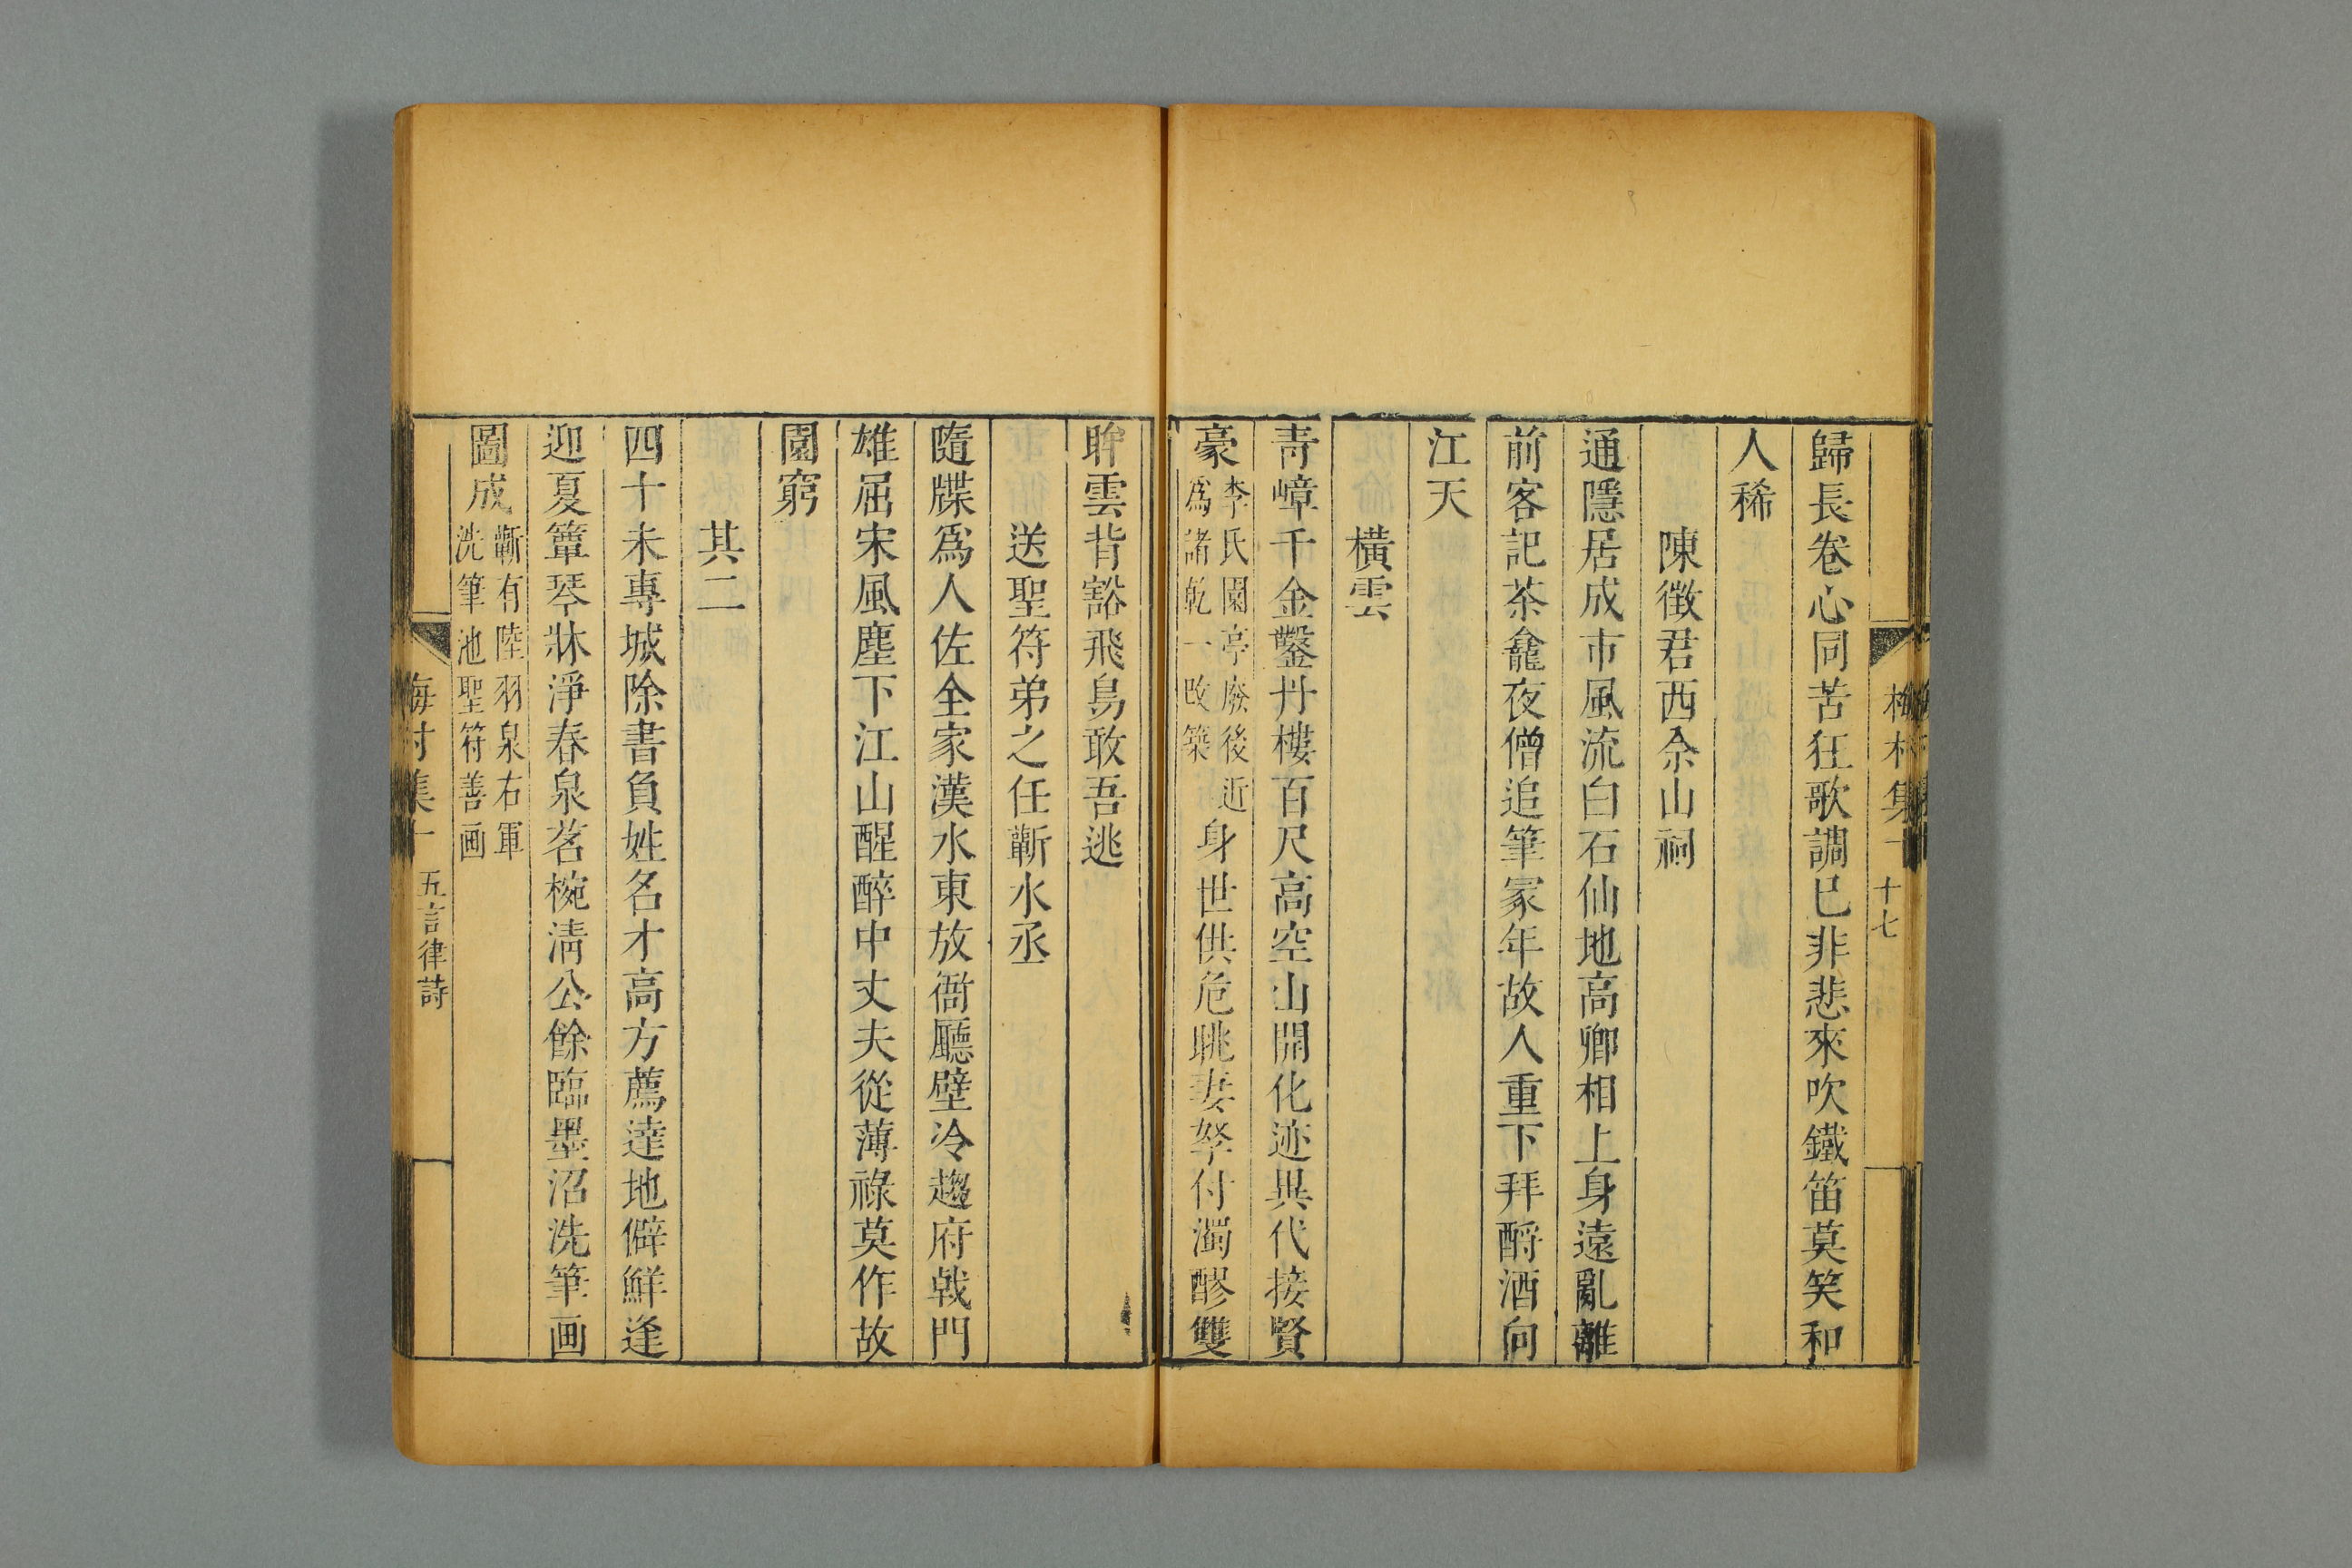 歸長卷心同苦狂歌調已非悲來吹鐵笛莫笑和
人稀
陳徵君西佘山祠
通隱居成市風流白石仙地高卿相上身遠亂離
前客記茶龕夜僧追筆冢年故人重下拜酹酒向
江天
橫雲
青嶂千金鑿丹樓百尺高空山開化迹異代接賢
豪
李氏園亭廢後近
爲諸乾一改築
身世供危眺妻孥付濁醪雙
眸雲背豁飛鳥敢吾逃
送聖符弟之任蘄水丞
隨牒爲人佐全家漢水東放衙廳壁冷趨府戟門
雄屈宋風塵下江山醒醉中丈夫從薄祿莫作故
園窮
其二
四十未專城除書負姓名才高方薦達地僻鮮逢
迎夏簟琴牀淨春泉茗椀清公餘臨墨沼洗筆画
圖成
蘄有陸羽泉右軍
洗筆池聖符善画
梅村集
十七
梅村集十
五言律詩